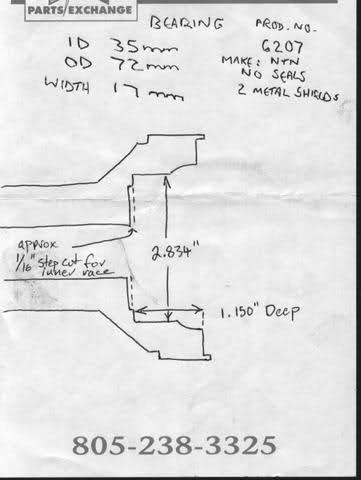 PARTS/EXCHANGE
BEARING PROD. NO.
ID 35mm 6207
OD 72mm MAKE: NTN
WIDTH 17mm NO SEALS
2 METAL SHIELDS
approx
1/16" step cut for
inner race
2.834"
1.150" Deep
805-238-3325